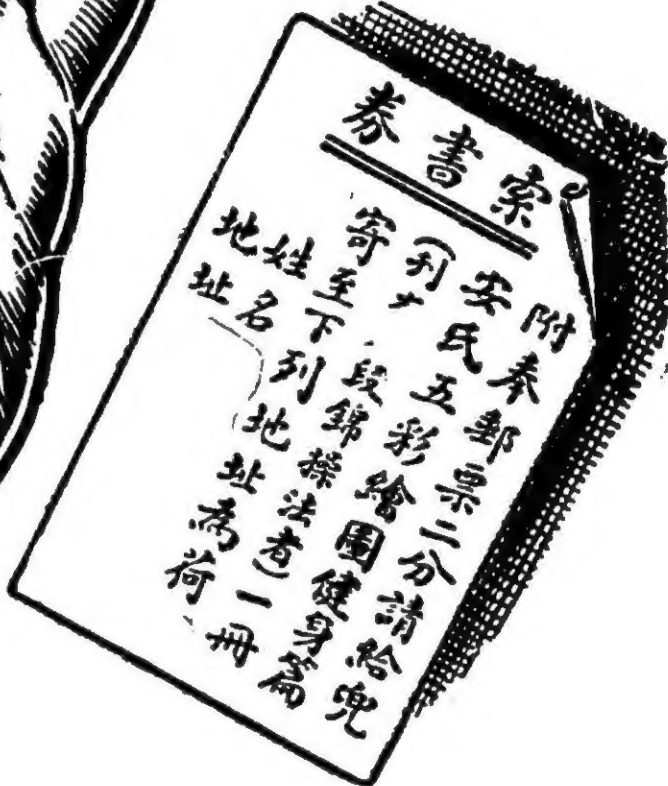 索書券
附奉郵票二分請給兜
安氏五彩繪圖健身篇
(刋段錦操法者)一冊
寄至下列地址為荷
姓名
地址